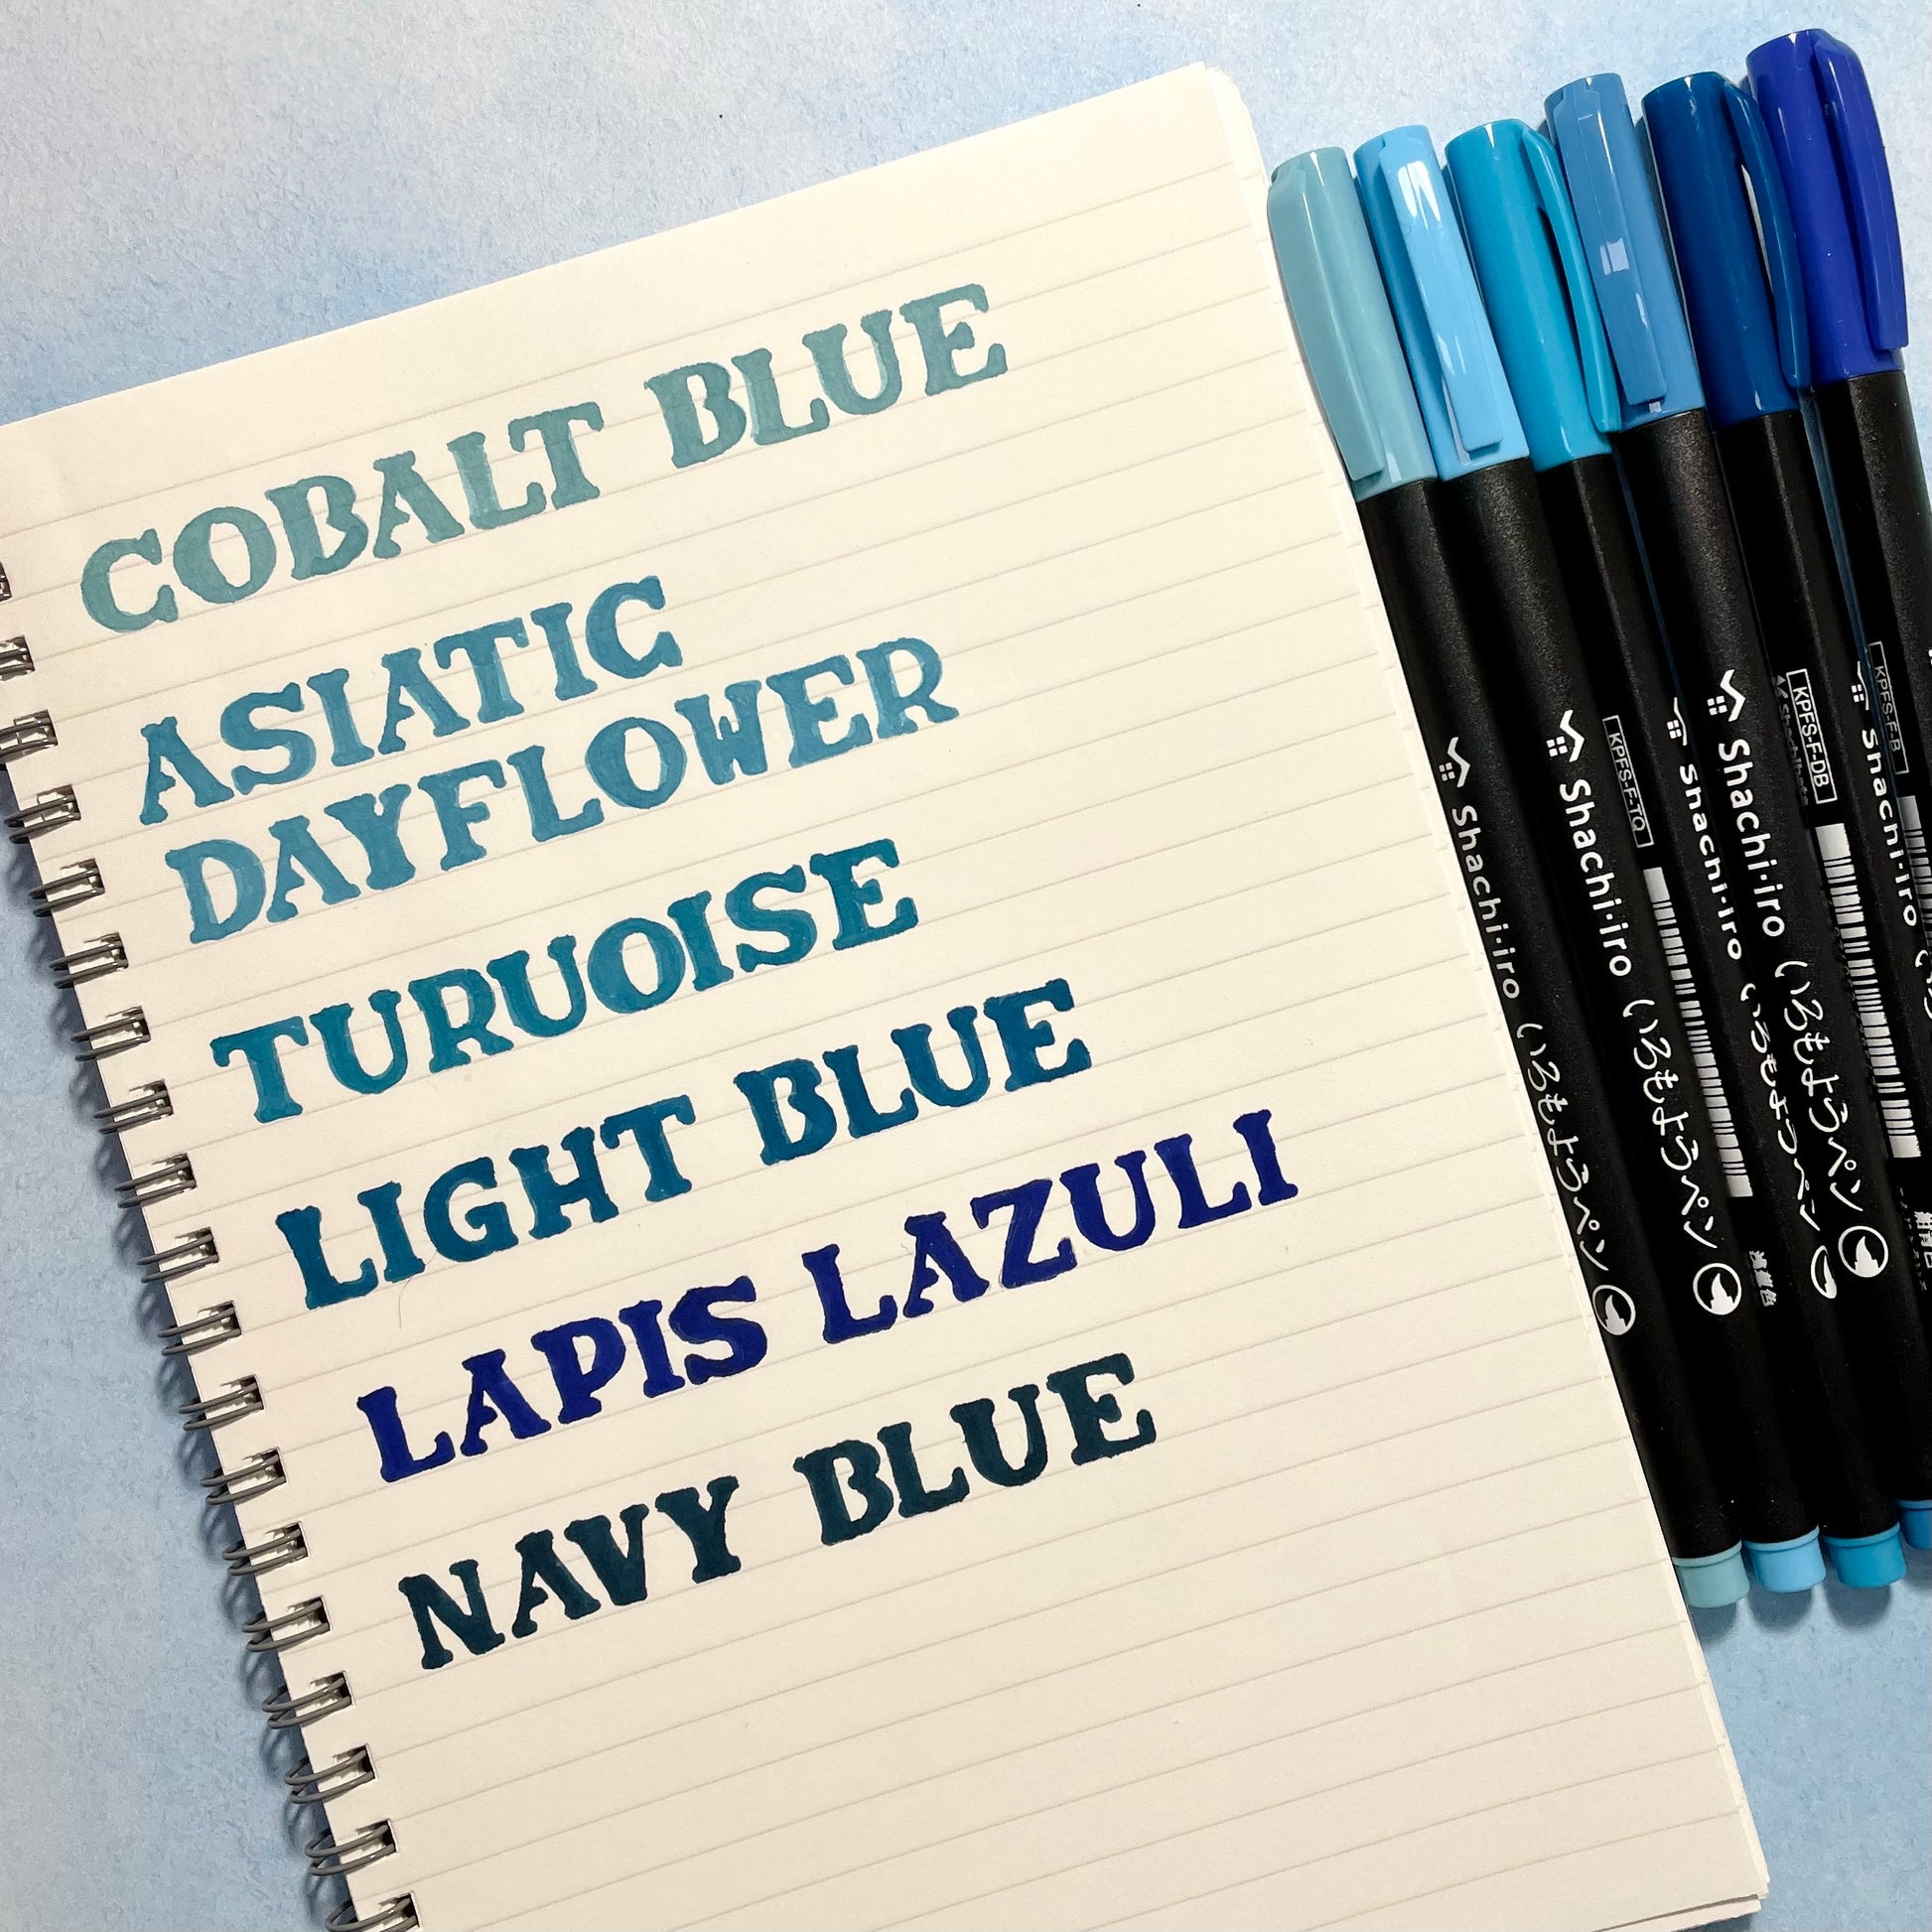 COBALT BLUE
ASIATIC
DAYFLOWER
TURUOISE
LIGHT BLUE
LAPIS LAZULI
NAVY BLUE
Shachi·iro いろもようペン
Shachi·iro いろもようペン
KPFS-F-TQ
Shachi·iro いろもようペン
Shachi·iro いろもようペン
KPFS-F-DB
Shachihata
Shachi·iro
KPFS-F-B